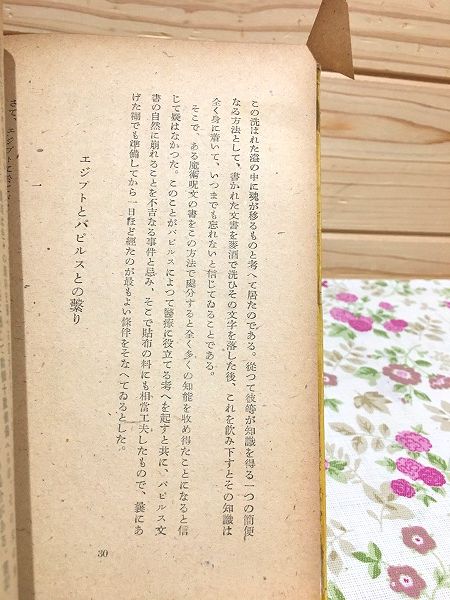 この洗はれた澄の中に魂が移るものと考へて居たのである。從つて彼等が知識を得る一つの簡便
なる方法として、書かれた文書を麥酒で洗ひその文字を落した後、これを飲み下すとその知識は
全く身に着いて、いつまでも忘れないと信じてゐることである。
そこで、ある魔術呪文の書をこの方法で處分すると全く多くの知能を收め得たことになると信
じて疑はなかつた。このことがパピルスによつて醫療に役立てる考へを起すと共に、パピルス文
書の自然に崩れることを不吉なる事件と忌み、そこで貼布の料にも相當工夫したもので、曩にあ
げた糊でも準備してから一日ほど經たのが最もよい條件をそなへてゐるとした。
エジプトとパピルスとの繫り
30